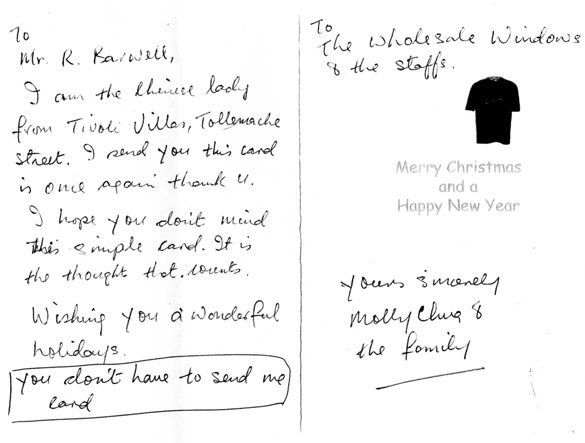 To
Mr. R. Barwell,
I am the Chinese lady
from Tivoli Villas, Tollemache
street. I send you this card
is once again thank u.
I hope you don't mind
this simple card. It is
the thought that counts.
Wishing you a wonderful
holidays.
you don't have to send me
card
To
The Wholesale Windows
& the staffs.
Merry Christmas
and a
Happy New Year
yours sincerely
Molly Chua &
the family